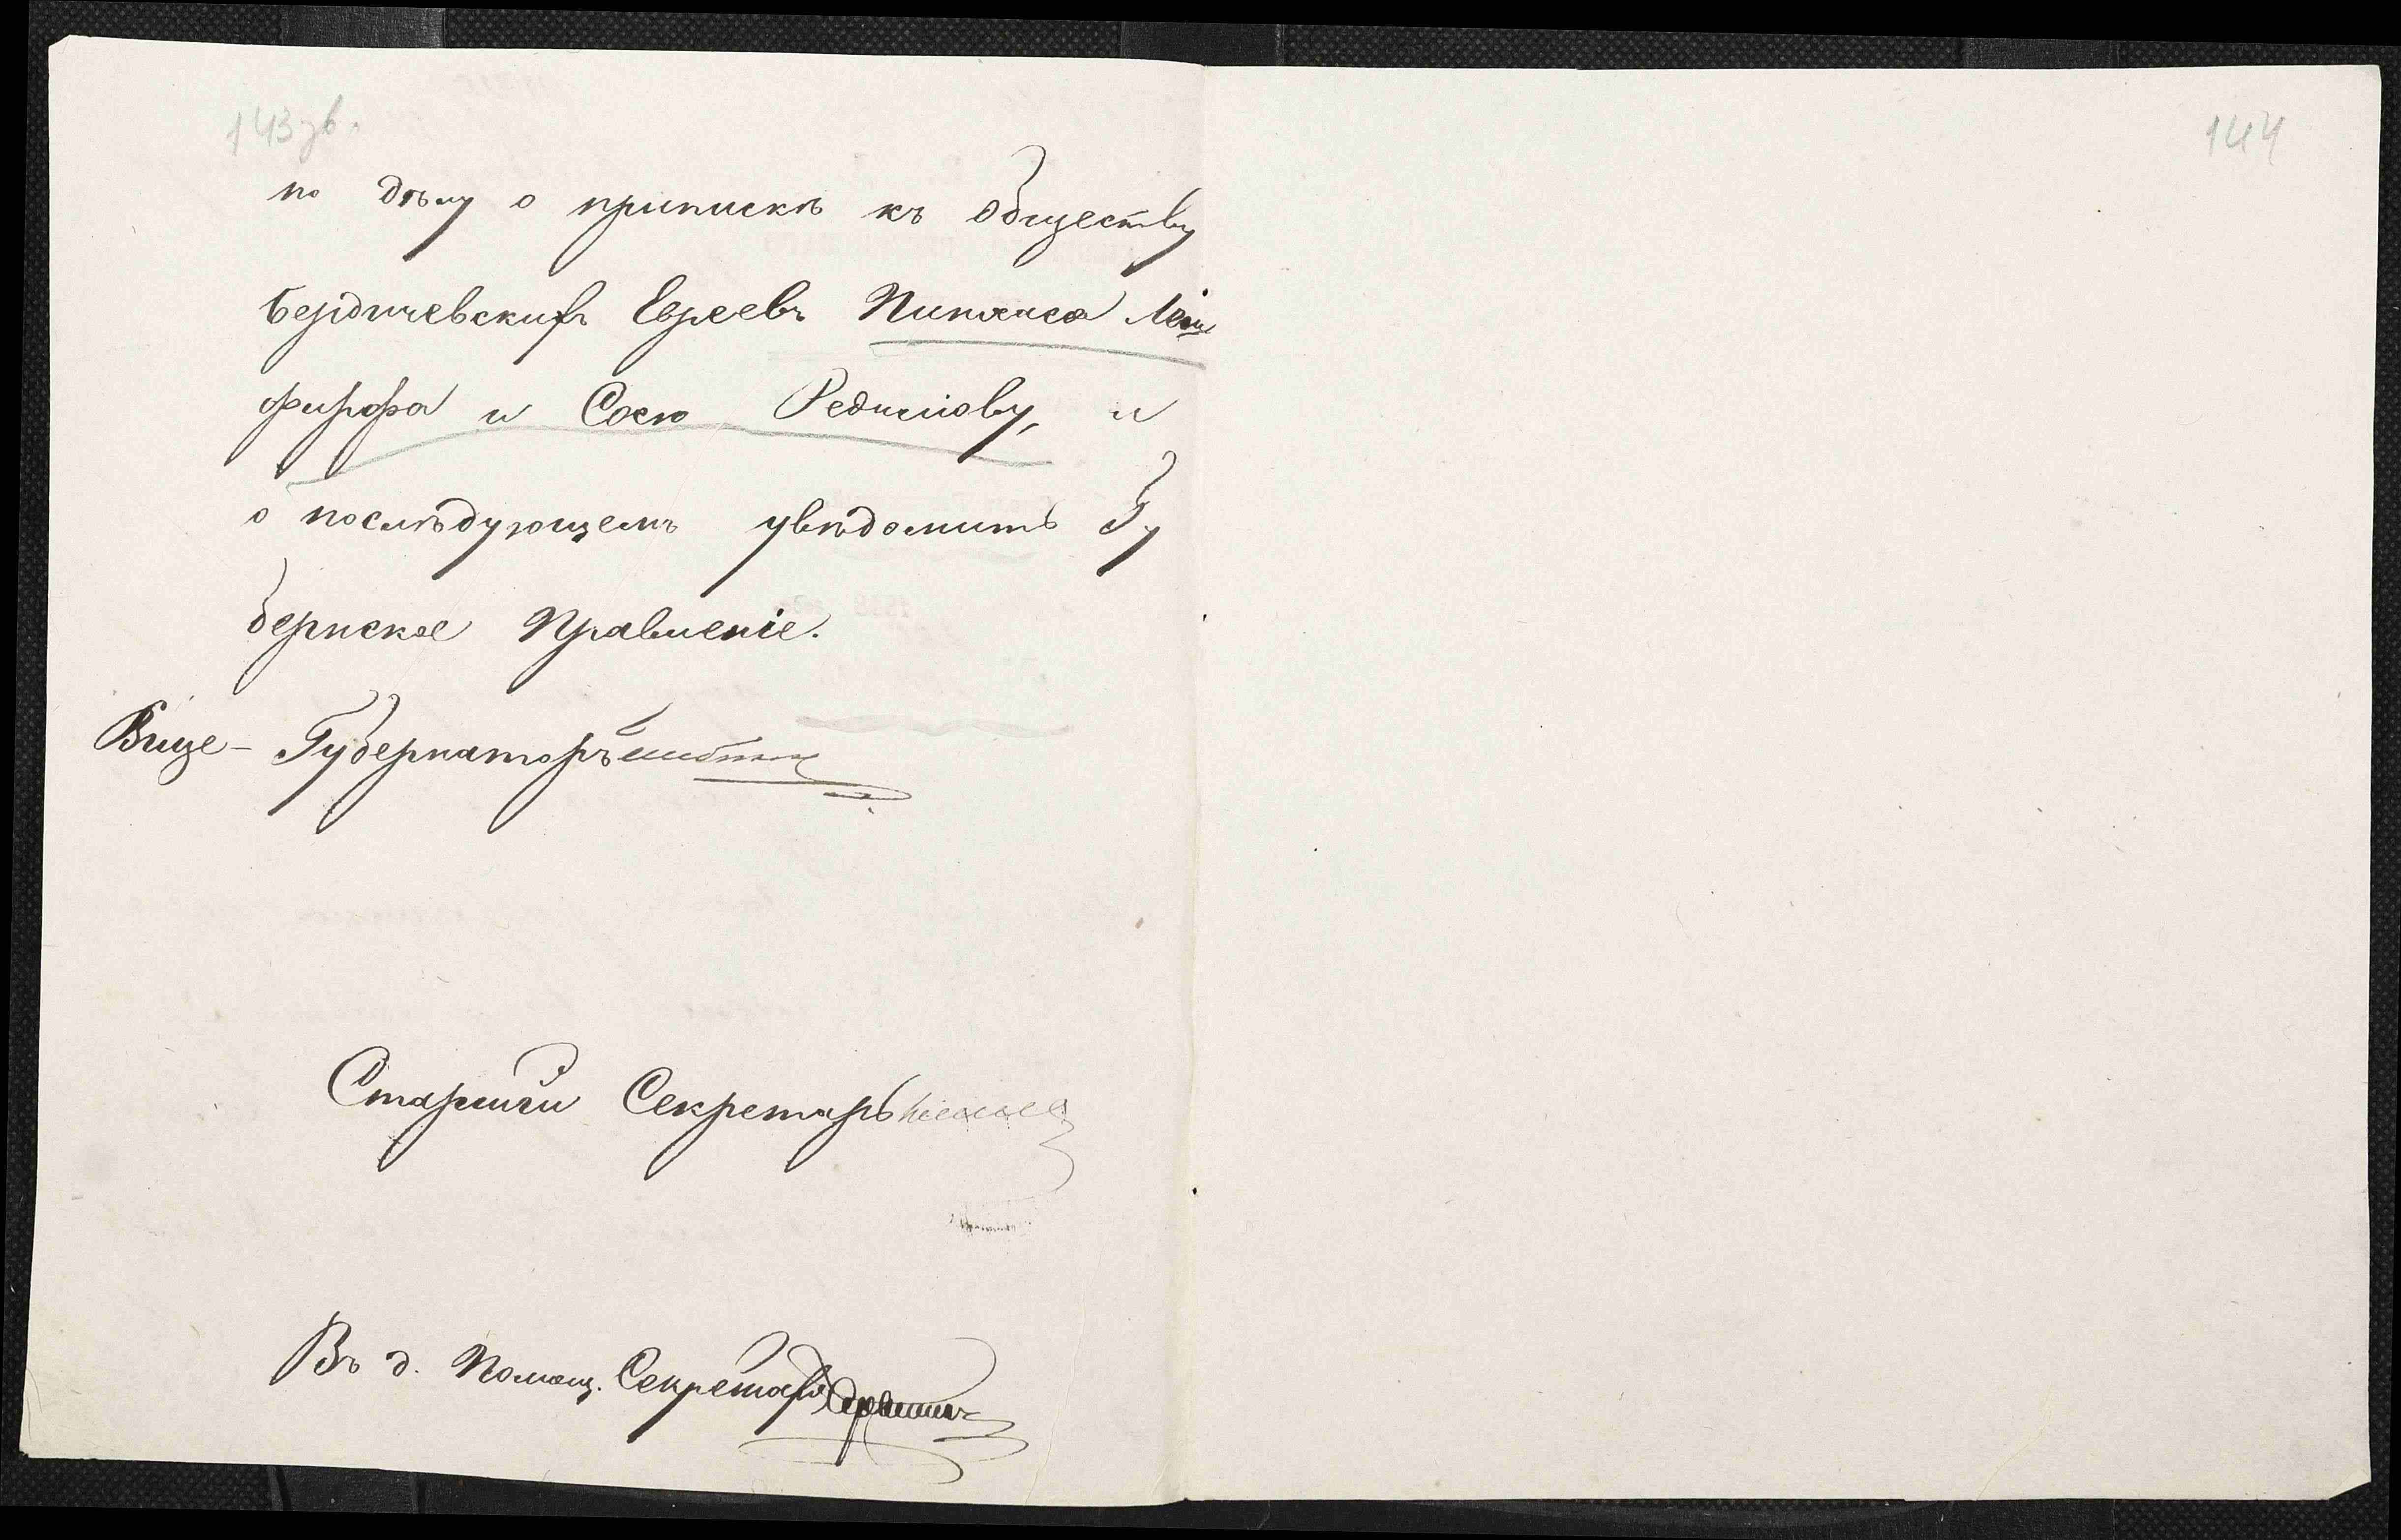 143зв.
144
по дѣлу о припискѣ къ обществу
Бердичевскихъ Евреевъ Пинхаса
и Сосю и
о послѣдующемъ увѣдомить Гу
бернское Правленіе.
Вице-Губернаторъ
Старшій Секретарь
Въ д. Помощ. Секретаря